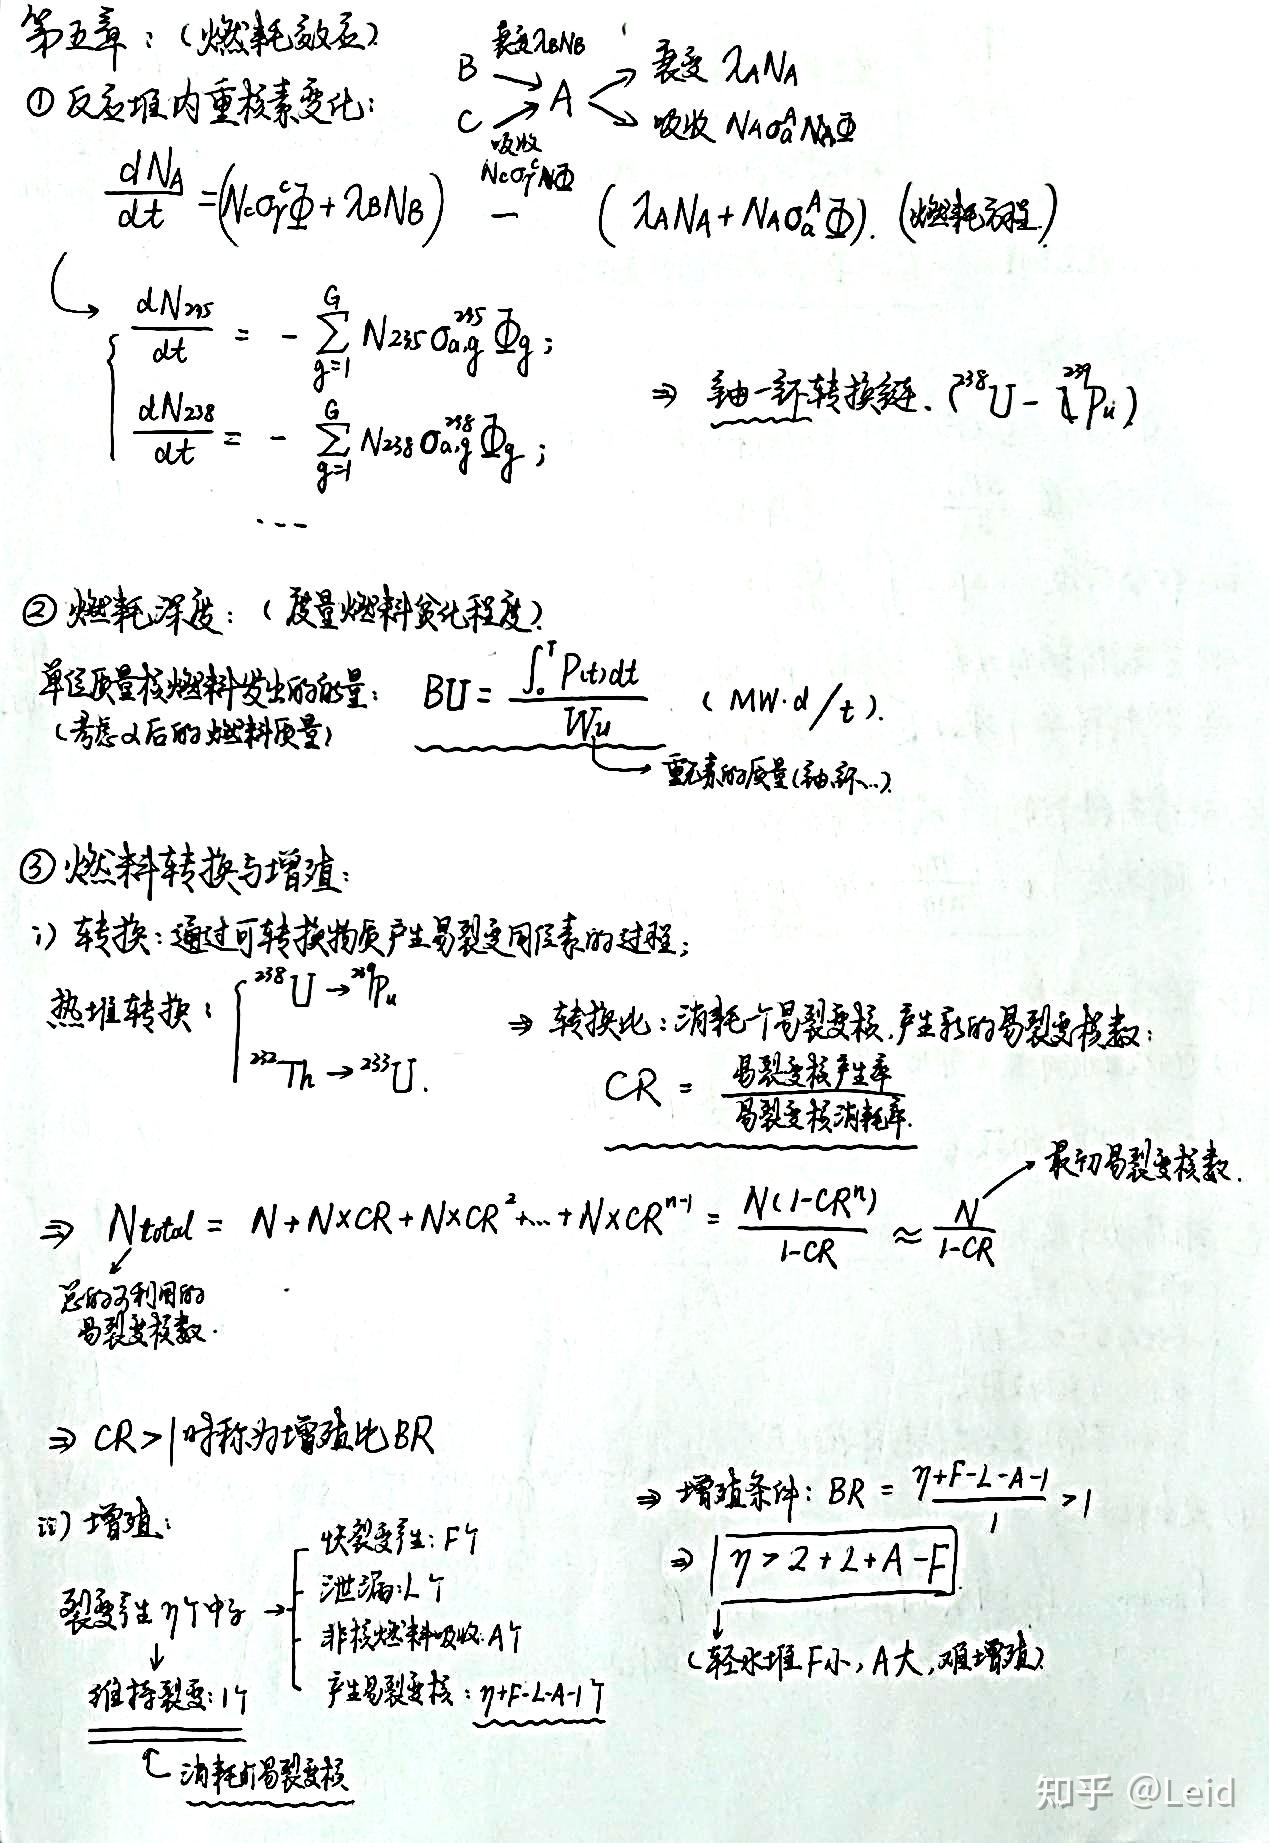 第五章：（燃耗效应）
① 反应堆内重核素变化：
B 衰变λBNB
C 吸收 NcσγᶜΦ
A
衰变 λANA
吸收 NAσaᴬΦ
dNA/dt = (NcσγᶜΦ + λBNB) － (λANA + NAσaᴬΦ). (燃耗方程)
dN235/dt = － ∑(g=1→G) N235 σa,g²³⁵ Φg;
dN238/dt = － ∑(g=1→G) N238 σa,g²³⁸ Φg;
...
⇒ 铀－钚转换链. (²³⁸U－²³⁹Pu)
② 燃耗深度：（度量燃料贫化程度）
单位质量核燃料发出的能量：
（考虑α后的燃料质量）
BU = ∫₀ᵀP(t)dt / Wu （MW·d/t）.
重元素的质量(铀,钚...)
③ 燃料转换与增殖：
i) 转换：通过可转换物质产生易裂变同位素的过程；
热堆转换：
²³⁸U → ²³⁹Pu
²³²Th → ²³³U.
⇒ 转换比：消耗一个易裂变核,产生新的易裂变核数：
CR = 易裂变核产生率/易裂变核消耗率.
最初易裂变核数.
⇒ Ntotal = N + N×CR + N×CR² +...+ N×CRⁿ⁻¹ = N(1-CRⁿ)/1-CR ≈ N/1-CR
总的可利用的
易裂变核数.
⇒ CR > 1 时称为增殖比 BR
ii) 增殖：
裂变产生 η个中子 →
快裂变产生：F个
泄漏：L个
非核燃料吸收：A个
产生易裂变核：η+F-L-A-1个
维持裂变：1个
消耗的易裂变核
⇒ 增殖条件：BR = η+F-L-A-1/1 > 1
⇒ η > 2 + L + A - F
（轻水堆 F小，A大，难增殖）
知乎 @Leid